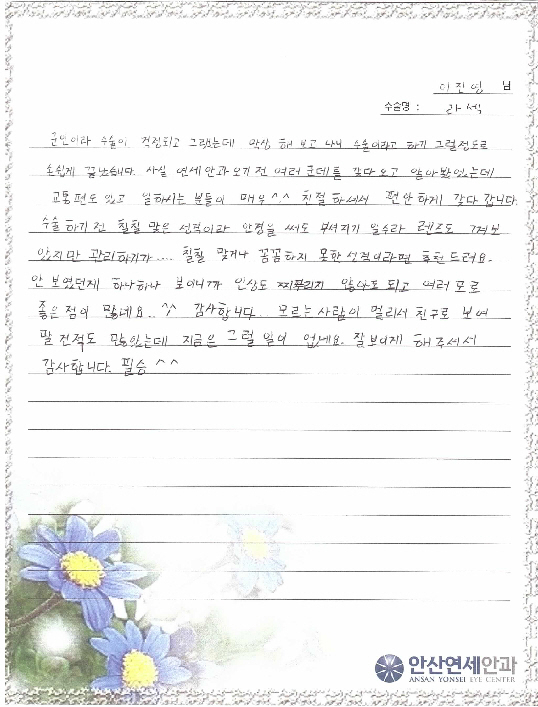 이진영 님
수술명 : 라섹
군인이라 수술이 걱정되고 그랬는데 막상 해 보고 나니 수술이라고 하기 그럴정도로
손쉽게 끝났습니다. 사실 연세안과 오기 전 여러 군데를 갔다오고 알아봤었는데
교통편도 있고 일하시는 분들이 매우^^ 친절하셔서 편안하게 갔다갑니다.
수술하기 전 칠칠 맞은 성격이라 안경을 써도 부셔지기 일수라 렌즈도 껴보
았지만 관리하기가.... 칠칠 맞거나 꼼꼼하지 못한 성격이라면 추천드려요.
안 보였던게 하나하나 보이니까 인상도 찌푸리지 않아도 되고 여러모로
좋은점이 많네요.. ^^ 감사합니다.. 모르는 사람이 멀리서 친구로 보여
팔 건적도 많았는데 지금은 그럴 일이 없네요. 잘보이게 해주셔서
감사합니다. 필승 ^^
안산연세안과
ANSAN YONSEI EYE CENTER